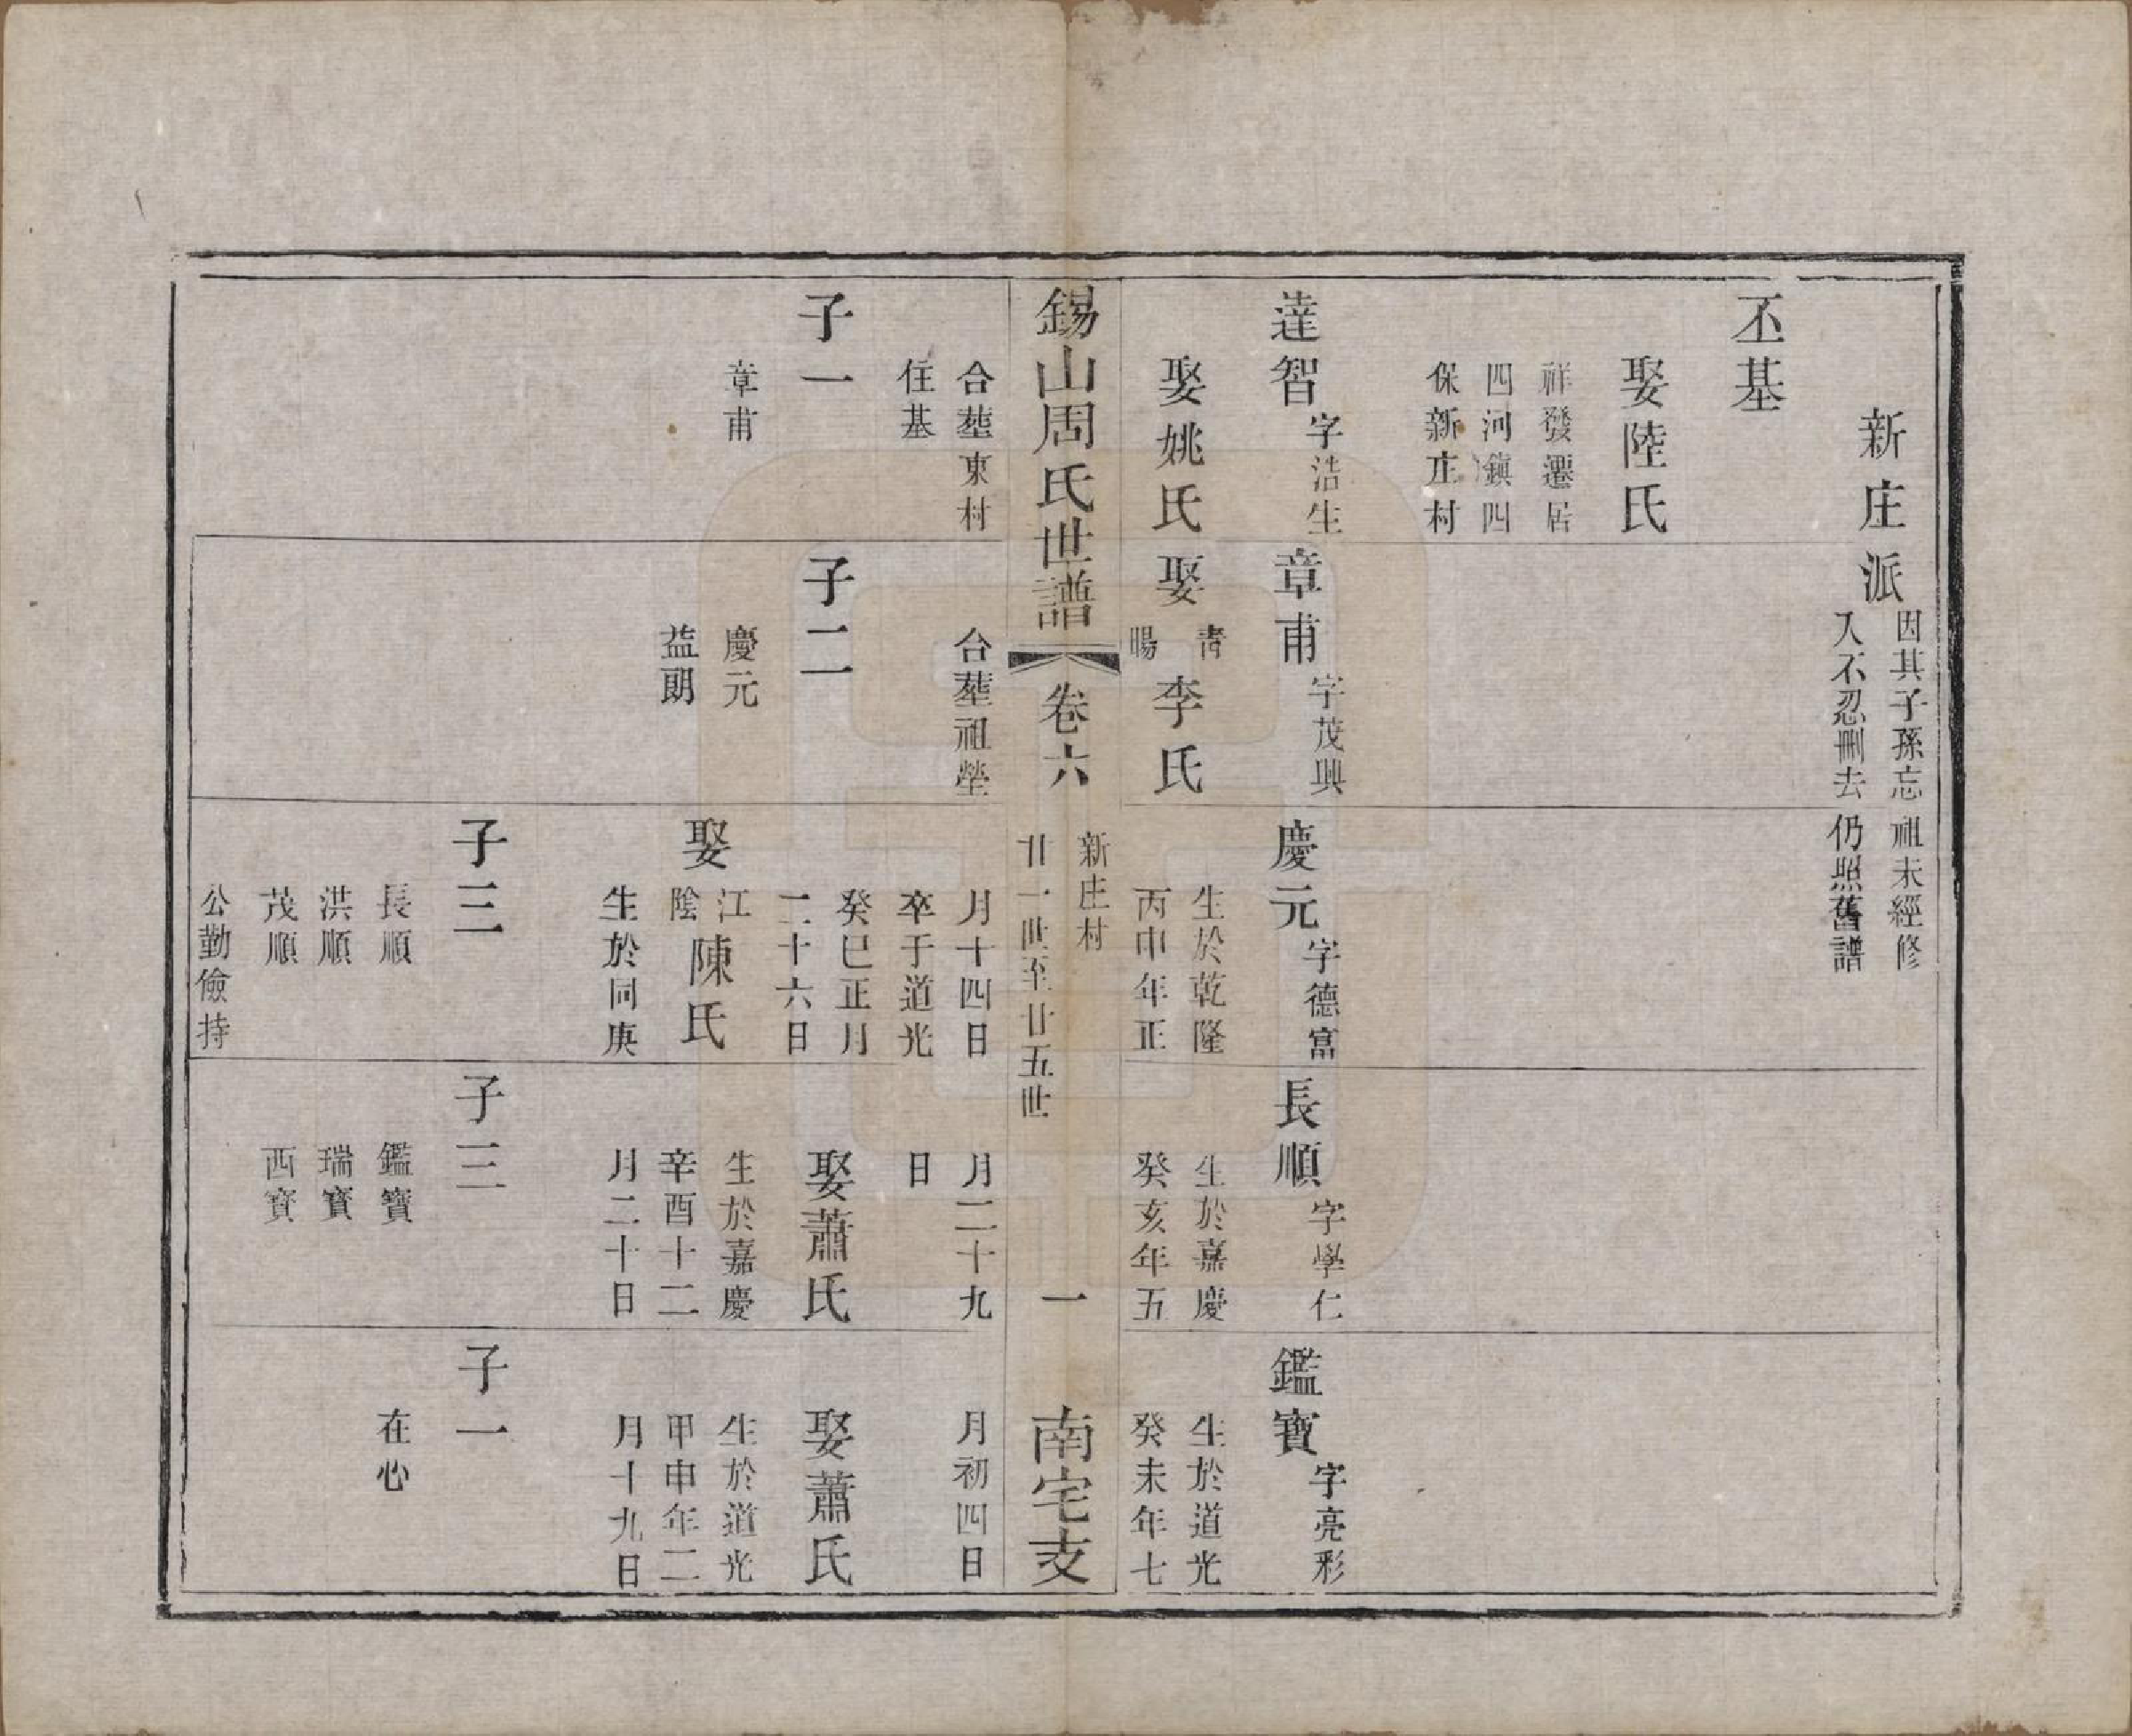 新庄派
因其子孫忘祖未經修
入不忍刪去仍照舊譜
丕基
娶陸氏
祥發遷居
四河鎮四
保新庄村
達智
字浩生
娶姚氏
章甫
字茂興
娶青暘李氏
慶元
字德富
生於乾隆
丙申年正
長順
字學仁
生於嘉慶
癸亥年五
鑑寶
字亮彩
生於道光
癸未年七
錫山周氏世譜
卷六
新庄村
廿一世至廿五世
一
南宅支
合塟東村
住基
子一
章甫
合塟祖塋
子二
慶元
益朗
月十四日
卒于道光
癸巳正月
二十六日
娶江陰陳氏
生於同庚
子三
長順
洪順
茂順
公勤儉持
月二十九
日
娶蕭氏
生於嘉慶
辛酉十二
月二十日
子三
鑑寶
瑞寶
西寶
月初四日
娶蕭氏
生於道光
甲申年二
月十九日
子一
在心